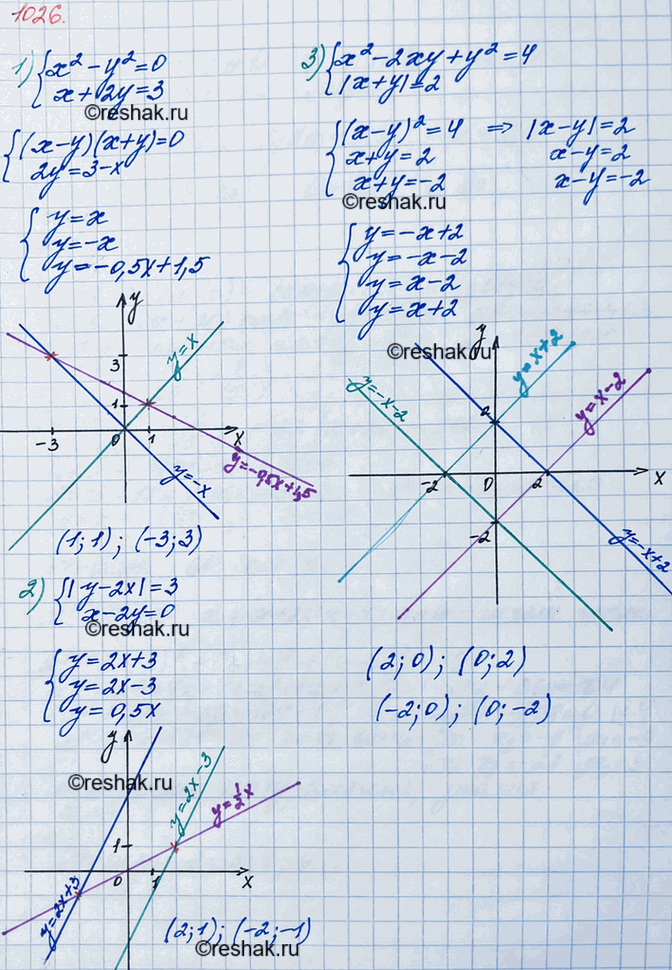 1026.
1) { x² - y² = 0
x + 2y = 3
©reshak.ru
{ (x-y)(x+y)=0
2y = 3-x
{ y = x
y = -x
y = -0,5x+1,5
y
3
1
-3
0
1
x
y=x
y=-x
y=-0,5x+1,5
(1; 1) ; (-3; 3)
2) { |y-2x| = 3
x-2y=0
©reshak.ru
{ y = 2x+3
y = 2x-3
y = 0,5x
y
©reshak.ru
1
0
1
x
y=2x+3
y=2x-3
y=½x
(2; 1) ; (-2; -1)
©reshak.ru
3) { x² - 2xy + y² = 4
|x+y|=2
{ (x-y)² = 4 ⇒ |x-y| = 2
x+y = 2 x-y=2
x+y=-2 x-y=-2
©reshak.ru
{ y = -x+2
y = -x-2
y = x-2
y = x+2
©reshak.ru
y
y=x+2
y=-x-2
y=x-2
2
-2
0
2
x
-2
y=-x+2
(2; 0) ; (0; 2)
(-2; 0) ; (0; -2)